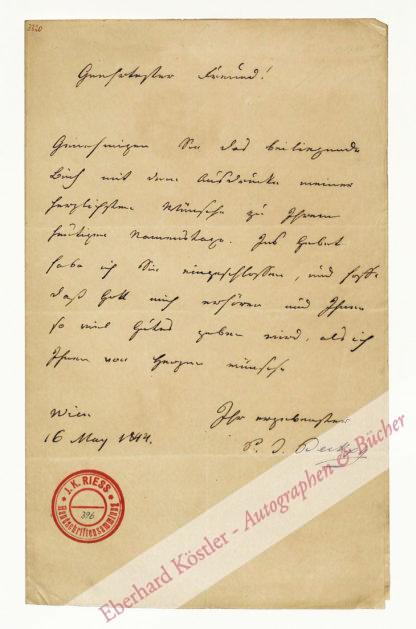 3320
Geehrtester Freund!
Genehmigen Sie das beiliegende
Buch mit dem Ausdrucke meiner
herzlichsten Wünsche zu Ihrem
heutigen Namenstage. Ins Gebet
habe ich Sie eingeschlossen, und hoffe
daß Gott mich erhören und Ihnen
so viel Gutes geben wird, als ich
Ihnen von Herzen wünsche
Wien
16 May 1844.
Ihr ergebenster
P. J.
J. K. RIESS
396
Handschriftensammlung
Eberhard Köstler - Autographen & Bücher